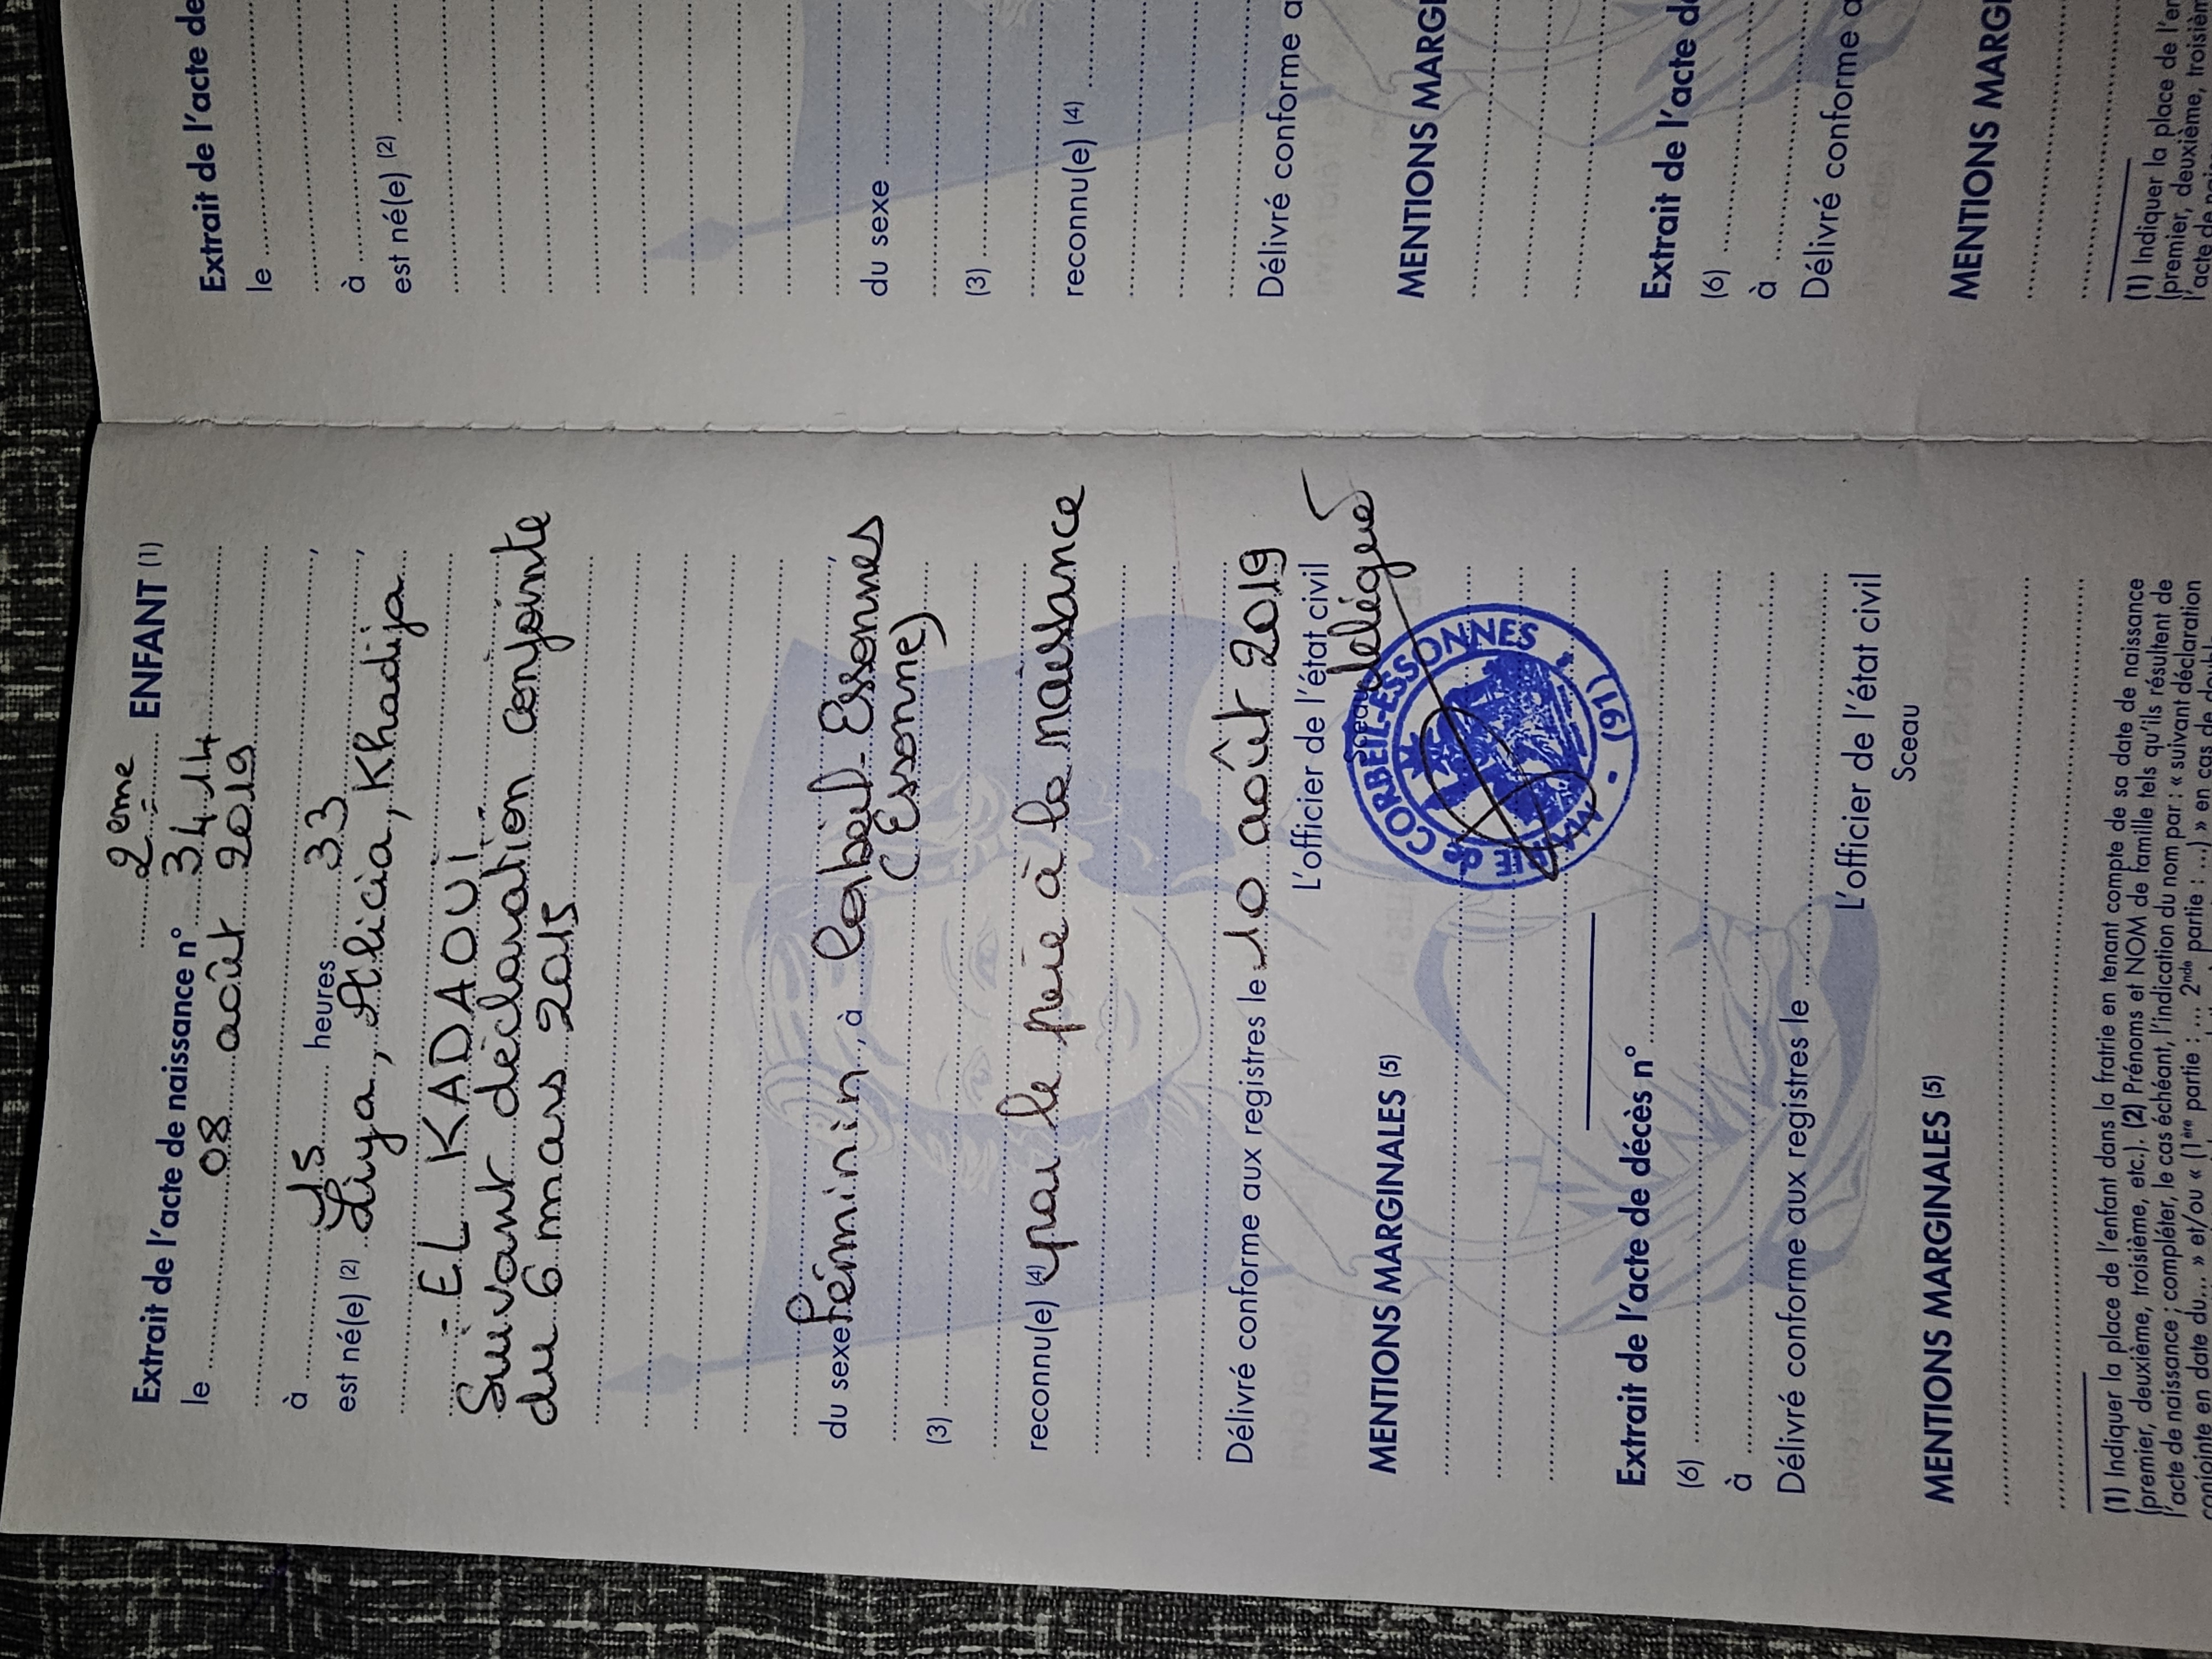 2ème ENFANT (1)
Extrait de l'acte de naissance n° 3414
le 08 août 2019
à 15 heures 33,
est né(e) (2) Liya, Alicia, Khadija
- EL KADAOUI -
Suivant déclaration conjointe
du 6 mars 2015
du sexe féminin, à Corbeil-Essonnes,
(Essonne)
(3)
reconnu(e) (4) par le père à la naissance
Délivré conforme aux registres le 10 août 2019
L'officier de l'état civil
Sceau délégué
MAIRIE de CORBEIL-ESSONNES (91)
MENTIONS MARGINALES (5)
Extrait de l'acte de décès n°
(6)
à
Délivré conforme aux registres le
L'officier de l'état civil
Sceau
MENTIONS MARGINALES (5)
(1) Indiquer la place de l'enfant dans la fratrie en tenant compte de sa date de naissance
(premier, deuxième, troisième, etc.). (2) Prénoms et NOM de famille tels qu'ils résultent de
l'acte de naissance ; compléter, le cas échéant, l'indication du nom par : « suivant déclaration
conjointe en date du... » et/ou « (1ère partie : ... 2nde partie : ...) » en cas de
Extrait de l'acte de
le
à
est né(e) (2)
du sexe
(3)
reconnu(e) (4)
Délivré conforme a
MENTIONS MARGI
Extrait de l'acte d
(6)
à
Délivré conforme a
MENTIONS MARGI
(1) Indiquer la place de l'en
(premier, deuxième, troisièm
l'acte de